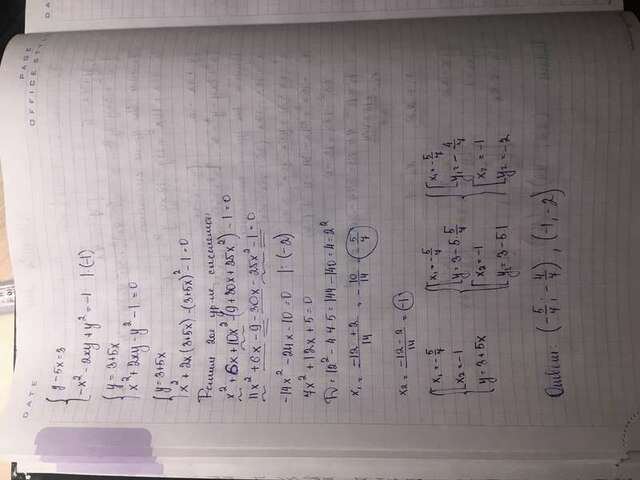 PAGE
OFFICE STYLE
DATE
{ y-5x=3
-x²-2xy+y²=-1 |(-1)
{ y=3+5x
x²+2xy-y²-1=0
{ y=3+5x
x²+2x(3+5x)-(3+5x)²-1=0
Решим 2ое ур-ие системы:
x²+6x+10x²-(9+30x+25x²)-1=0
11x²+6x-9-30x-25x²-1=0
-14x²-24x-10=0 |:(-2)
7x²+12x+5=0
D=12²-4·7·5=144-140=4=2²
x₁=(-12+2)/14=-10/14=(-5/7)
x₂=(-12-2)/14=(-1)
{ [ x₁=-5/7 { [ x₁=-5/7 { [ x₁=-5/7
x₂=-1 y=3-5·5/7 y₁=-4/7
y=3+5x { x₂=-1 { x₂=-1
y₁=3-5·1 y₂=-2
Ответ: (-5/7; -4/7), (-1;-2)